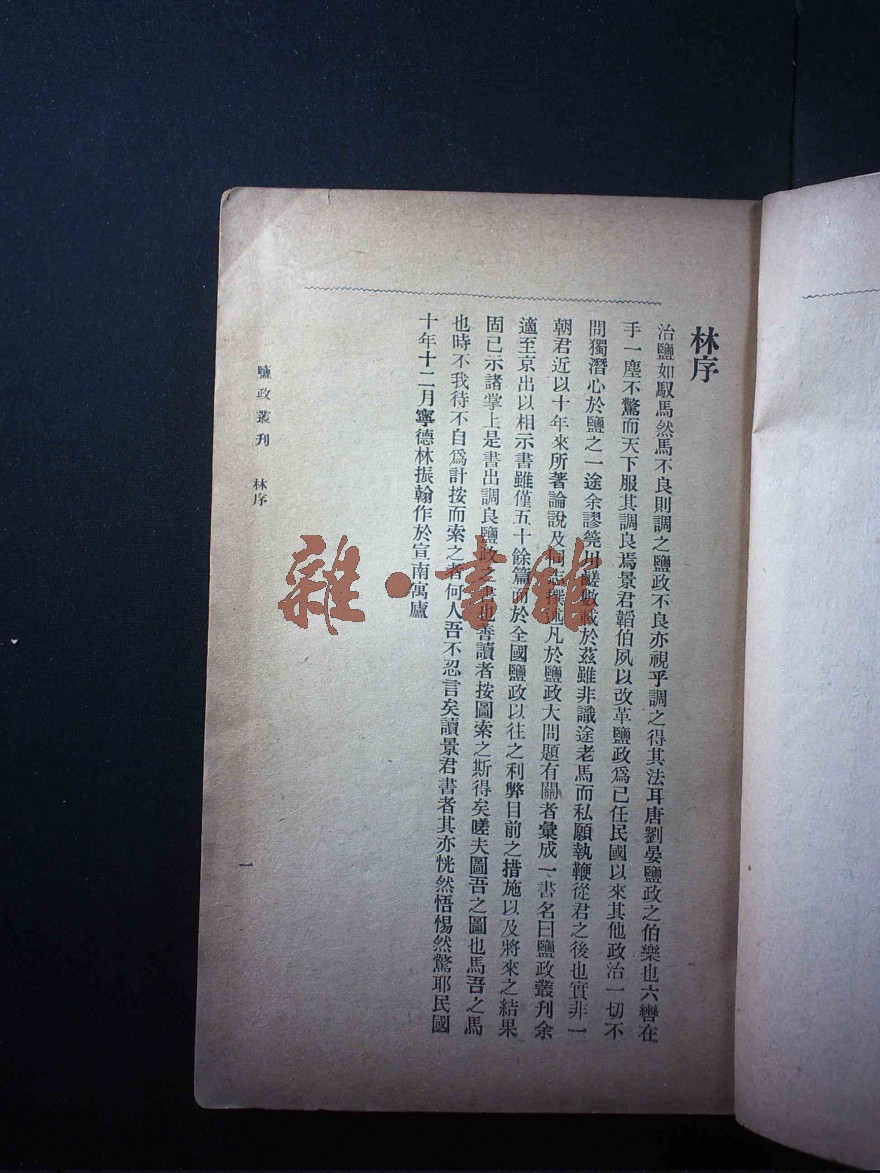 林序
治鹽如馭馬然馬不良則調之鹽政不良亦視乎調之得其法耳唐劉晏鹽政之伯樂也六轡在
手一塵不驚而天下服其調良焉景君韜伯夙以改革鹽政爲己任民國以來其他政治一切不
問獨潛心於鹽之一途余謬筦川鹺數載於茲雖非識途老馬而私願執鞭從君之後也實非一
朝君近以十年來所著論說及同志撰述凡於鹽政大問題有關者彙成一書名曰鹽政叢刊余
適至京出以相示書雖僅五十餘篇而於全國鹽政以往之利弊目前之措施以及將來之結果
固已示諸掌上是書出調良鹽政之也善讀者按圖索之斯得矣嗟夫圖吾之圖也馬吾之馬
也時不我待不自爲計按而索之者何人吾不忍言矣讀景君書者其亦恍然悟惕然驚耶民國
十年十二月寧德林振翰作於宣南寓廬
鹽政叢刊 林序
一
雜·書館